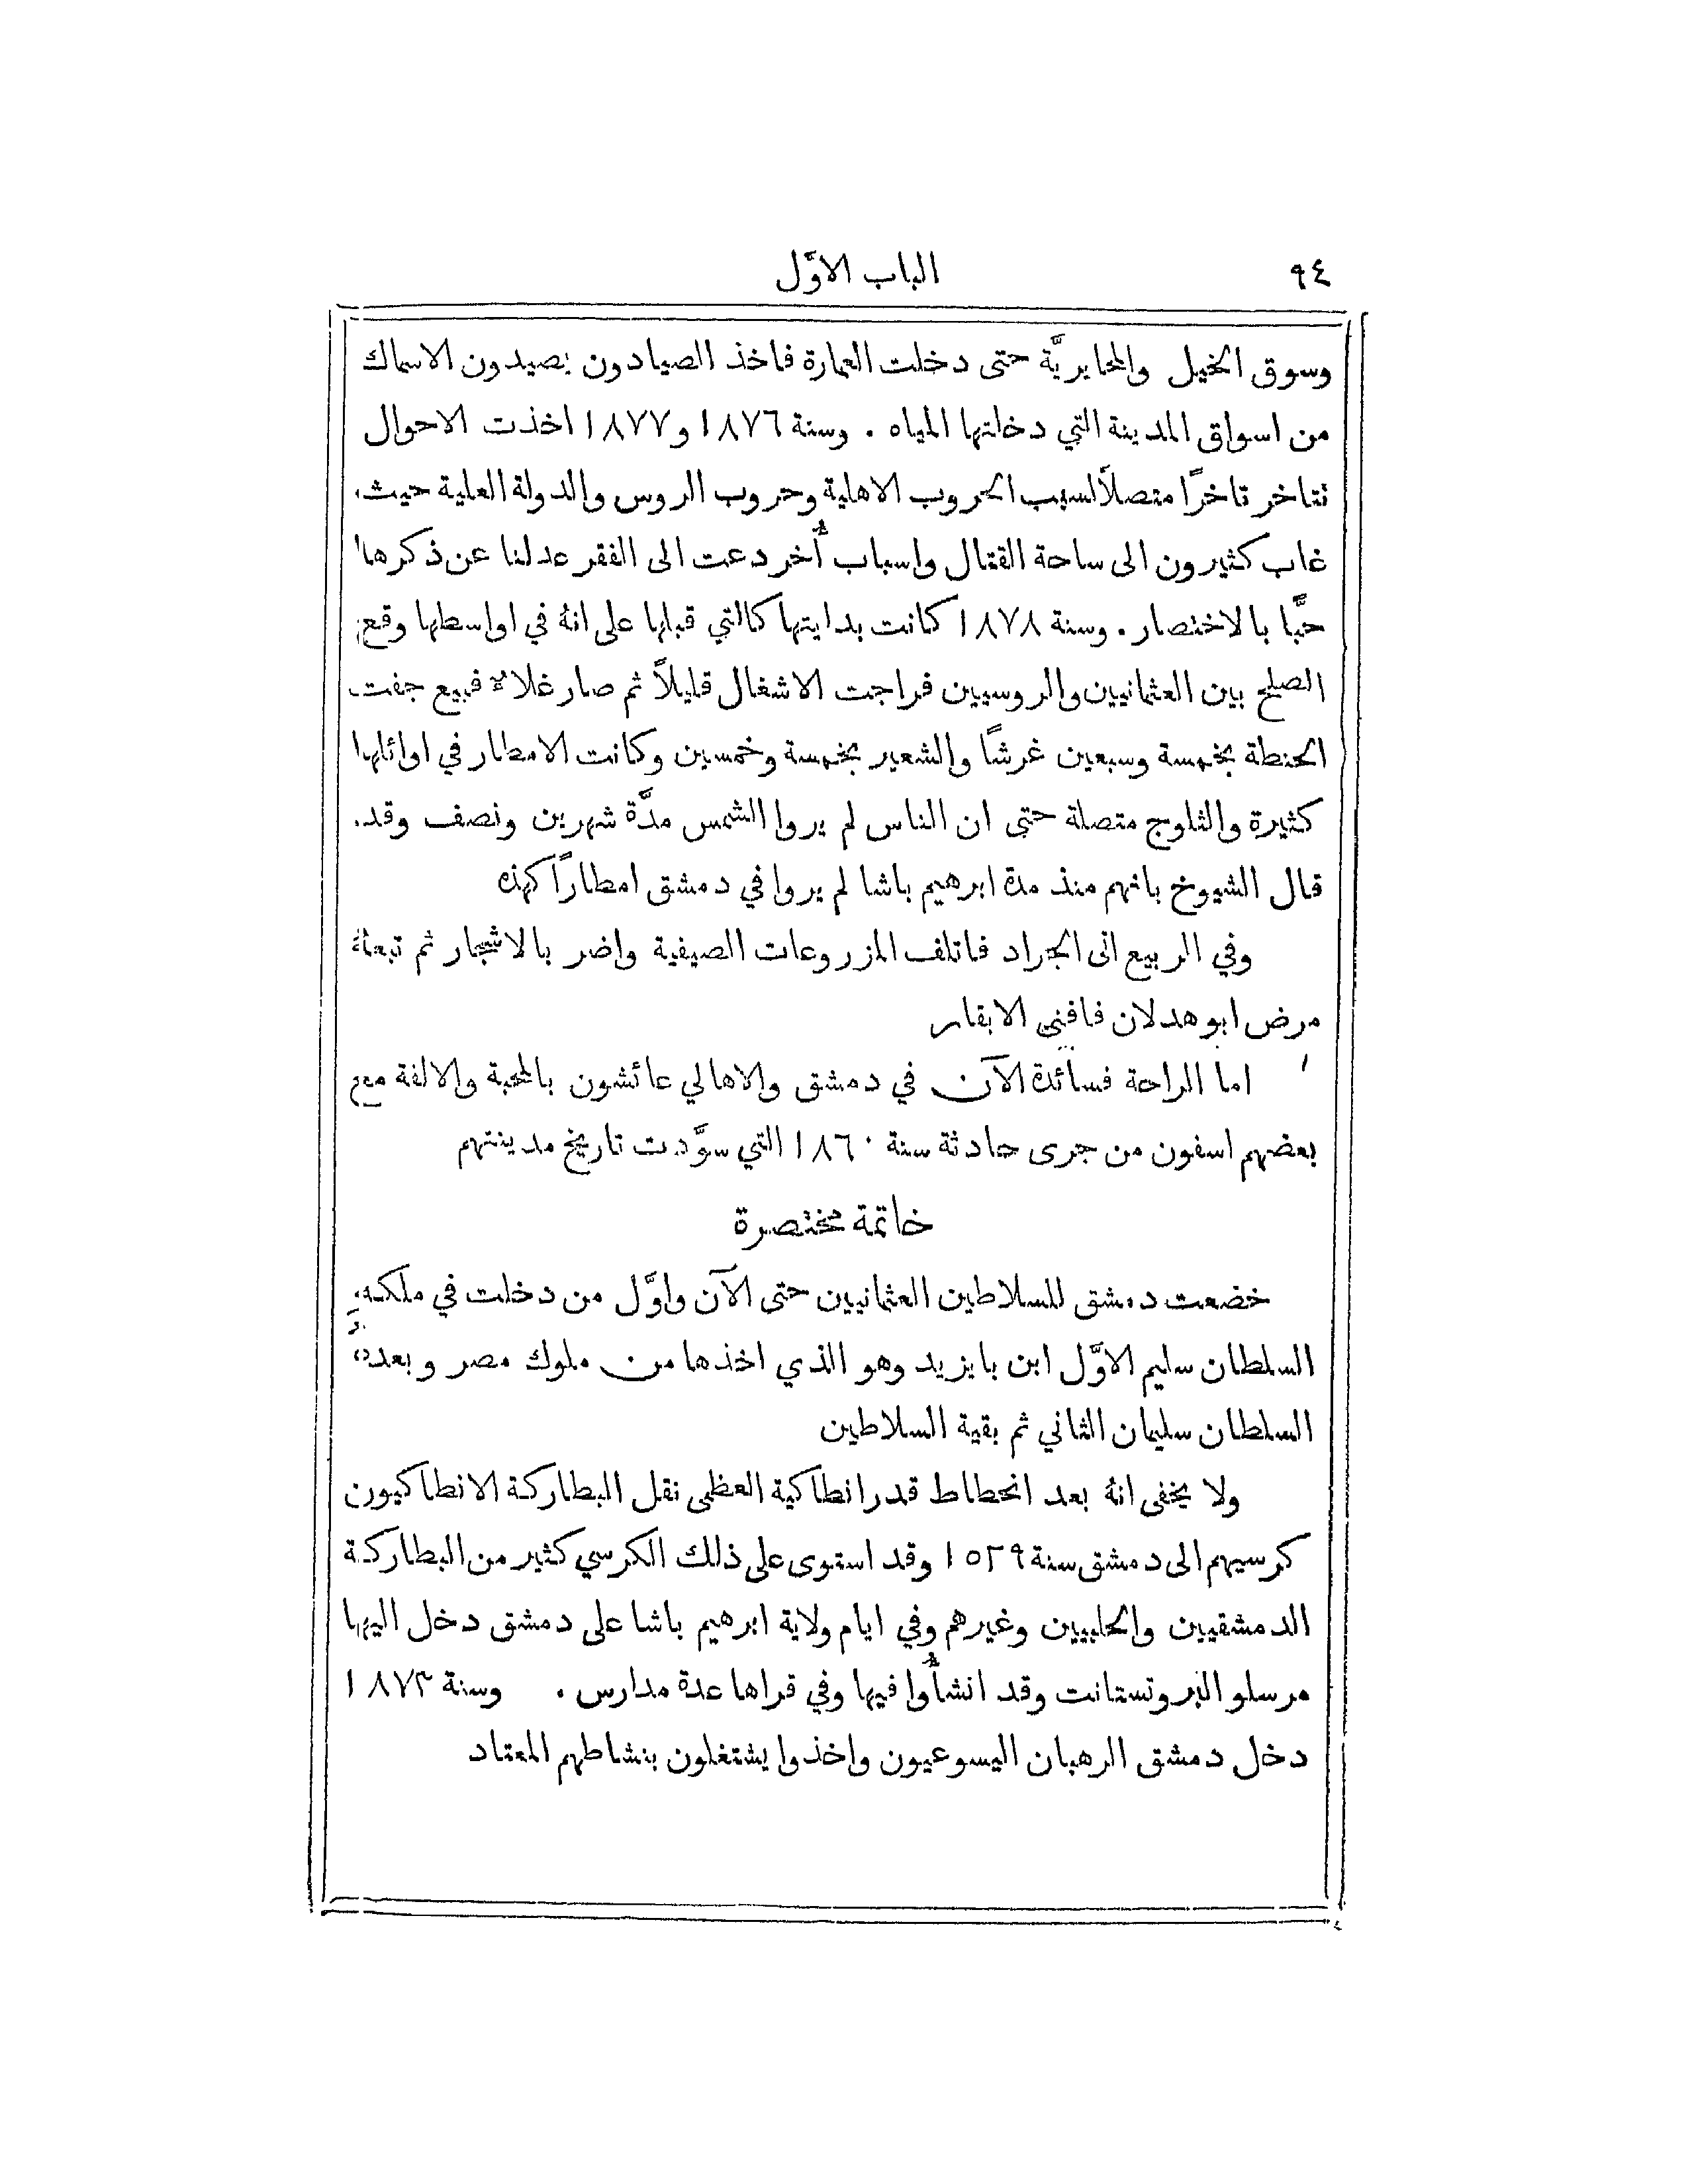 ٩٤
الباب الاوَّل
وسوق الخيل والمحايريَّة حتى دخلت العمارة فاخذ الصيادون يصيدون الاسماك
من اسواق المدينة التي دخلتها المياه . وسنة ١٨٧٦ و١٨٧٧ اخذت الاحوال
تتاخر تاخرًا متصلاً لسبب الحروب الاهلية وحروب الروس والدولة العلية حيث
غاب كثيرون الى ساحة القتال واسباب أُخر دعت الى الفقر عدلنا عن ذكرها
حبًّا بالاختصار . وسنة ١٨٧٨ كانت بدايتها كالتي قبلها على انهُ في اواسطها وقع
الصلح بين العثمانيين والروسيين فراجت الاشغال قليلاً ثم صار غلاء فبيع جفت
الحنطة بخمسة وسبعين غرشًا والشعير بخمسة وخمسين وكانت الامطار في اوائلها
كثيرة والثلوج متصلة حتى ان الناس لم يروا الشمس مدَّة شهرين ونصف وقد
قال الشيوخ بانهم منذ مدة ابرهيم باشا لم يروا في دمشق امطارًا كهذه
وفي الربيع اتى الجراد فاتلف المزروعات الصيفية واضر بالاشجار ثم تبعهُ
مرض ابو هدلان فافنى الابقار
اما الراحة فسائدة الآن في دمشق والاهالي عائشون بالمحبة والالفة مع
بعضهم اسفون من جرى حادثة سنة ١٨٦٠ التي سوَّدت تاريخ مدينتهم
خاتمة مختصرة
خضعت دمشق للسلاطين العثمانيين حتى الآن واوَّل من دخلت في ملكه
السلطان سليم الاوَّل ابن بايزيد وهو الذي اخذها من ملوك مصر وبعدهُ
السلطان سليمان الثاني ثم بقية السلاطين
ولا يخفى انهُ بعد انحطاط قدر انطاكية العظمى نقل البطاركة الانطاكيون
كرسيهم الى دمشق سنة ١٥٢٩ وقد استوى على ذلك الكرسي كثير من البطاركة
الدمشقيين والحلبيين وغيرهم وفي ايام ولاية ابرهيم باشا على دمشق دخل اليها
مرسلو البروتستانت وقد انشأُوا فيها وفي قراها عدة مدارس . وسنة ١٨٧٣
دخل دمشق الرهبان اليسوعيون واخذوا يشتغلون بنشاطهم المعتاد